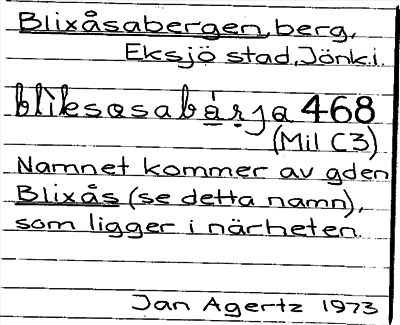 Blixåsabergen, berg,
Eksjö stad, Jönk.i.
blìksosabárja 468
(Mil C3)
Namnet kommer av gden
Blixås (se detta namn),
som ligger i närheten.
Jan Agertz 1973